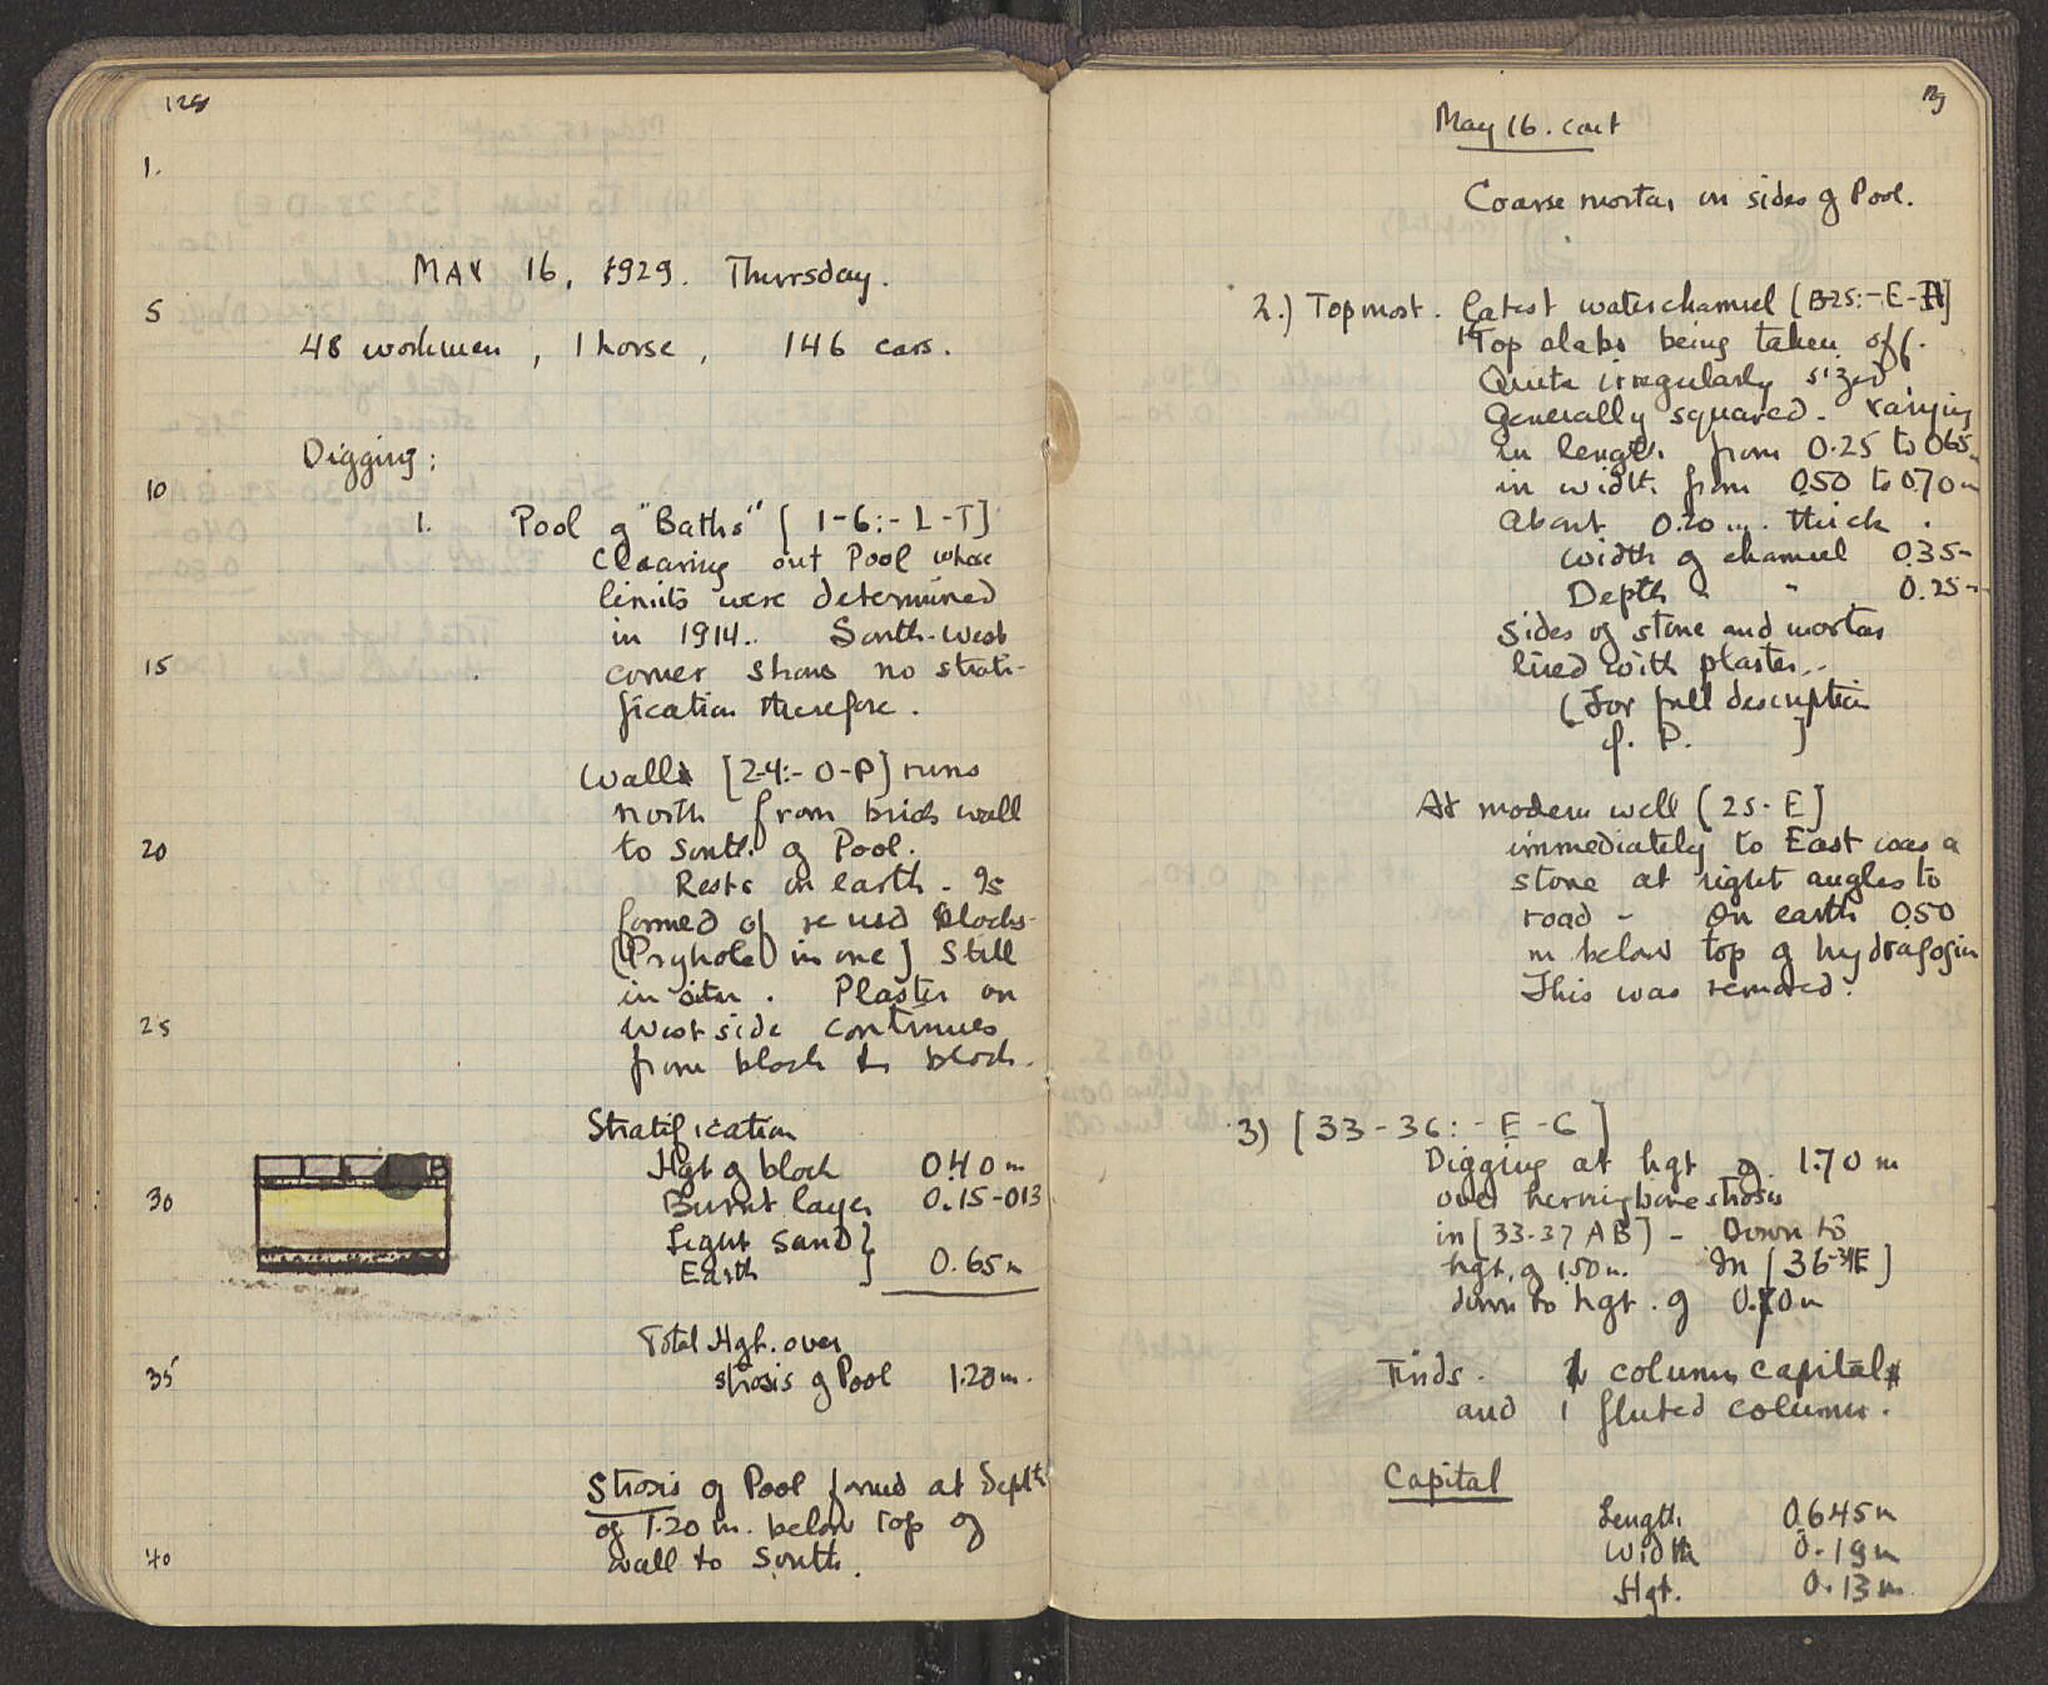 128
1.
MAY 16, 1929. Thursday.
5
48 workmen, 1 horse, 146 cars.
Digging:
10
1. Pool of "Baths" [1-6:- L-T]
Clearing out Pool whose
limits were determined
in 1914. South-West
15
corner shows no strati-
fication therefore.
Wall [2-4:- O-P] runs
north from brick wall
20
to South of Pool.
Rests on earth - Is
formed of re used blocks -
(Pryhole in one) Still
in situ. Plaster on
25
West side continues
from block to block.
Stratification
Hgt of block 0.40 m
30
Burnt layer 0.15-013
Light Sand }
Earth } 0.65 m
Total Hgt. over
35
strosis of Pool 1.20 m.
Strosis of Pool found at depth
of 1.20 m. below top of
40
wall to South.
129
May 16. cont
Coarse mortar on sides of Pool.
2.) Topmost. latest waterchannel [B25:- E-H]
Top slabs being taken off.
Quite irregularly sized
Generally squared - varying
in length from 0.25 to 065
in width from 0.50 to 0.70 m
About 0.20 m. thick.
Width of channel 0.35-
Depth " " 0.25-
Sides of stone and mortar
lined with plaster.
(For full description
cf. P. ]
At modern well [25-E]
immediately to East was a
stone at right angles to
road - On earth 0.50
m below top of hydragogion
This was removed.
3) [33-36:- E-G]
Digging at hgt of 1.70 m
over herringbone strosis
in [33-37 AB] - Down to
hgt. of 1.50 m. In [36-37E]
down to hgt. of 0.70 m
Finds. 1 column capital
and 1 fluted column.
Capital
Length 0.645 m
Width 0.19 m
Hgt. 0.13 m